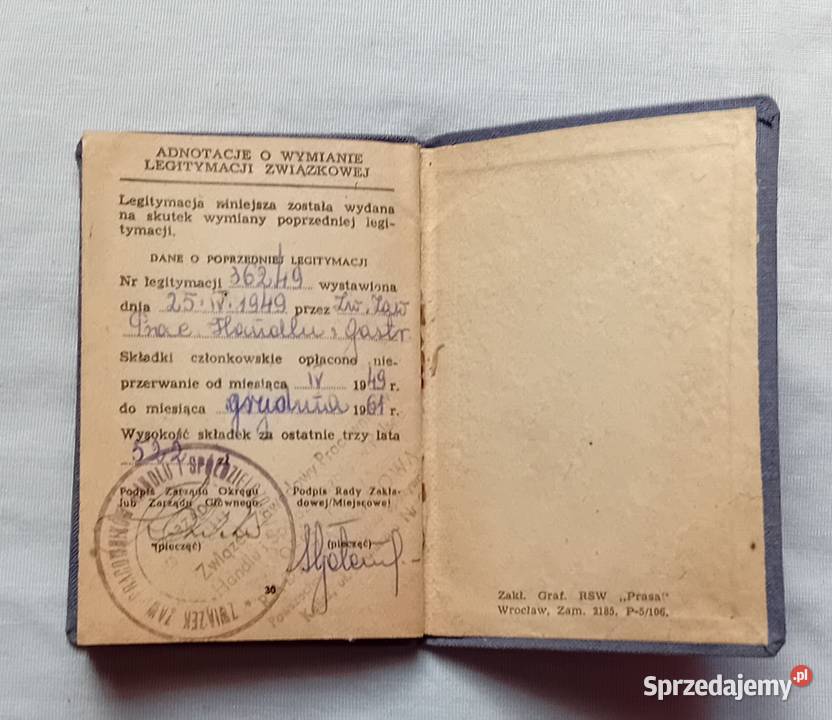 ADNOTACJE O WYMIANIE
LEGITYMACJI ZWIĄZKOWEJ
Legitymacja niniejsza została wydana
na skutek wymiany poprzedniej legi-
tymacji.
DANE O POPRZEDNIEJ LEGITYMACJI
Nr legitymacji 362/49 wystawiona
dnia 25.IV.1949 przez Zw. Zaw
Prac. Handlu i Gastr.
Składki członkowskie opłacono nie-
przerwanie od miesiąca IV 1949 r.
do miesiąca grudnia 1961 r.
Wysokość składek za ostatnie trzy lata
522 zł
Podpis Zarządu Okręgu
lub Zarządu Głównego
(pieczęć)
Podpis Rady Zakła-
dowej/Miejscowej
(pieczęć)
ZWIĄZEK ZAW. PRACOWNIKÓW HANDLU I SPÓŁDZIELCZOŚCI
Związek
Handlu
30
Zakł. Graf. RSW „Prasa"
Wrocław, Zam. 2185. P-5/106.
Sprzedajemy.pl